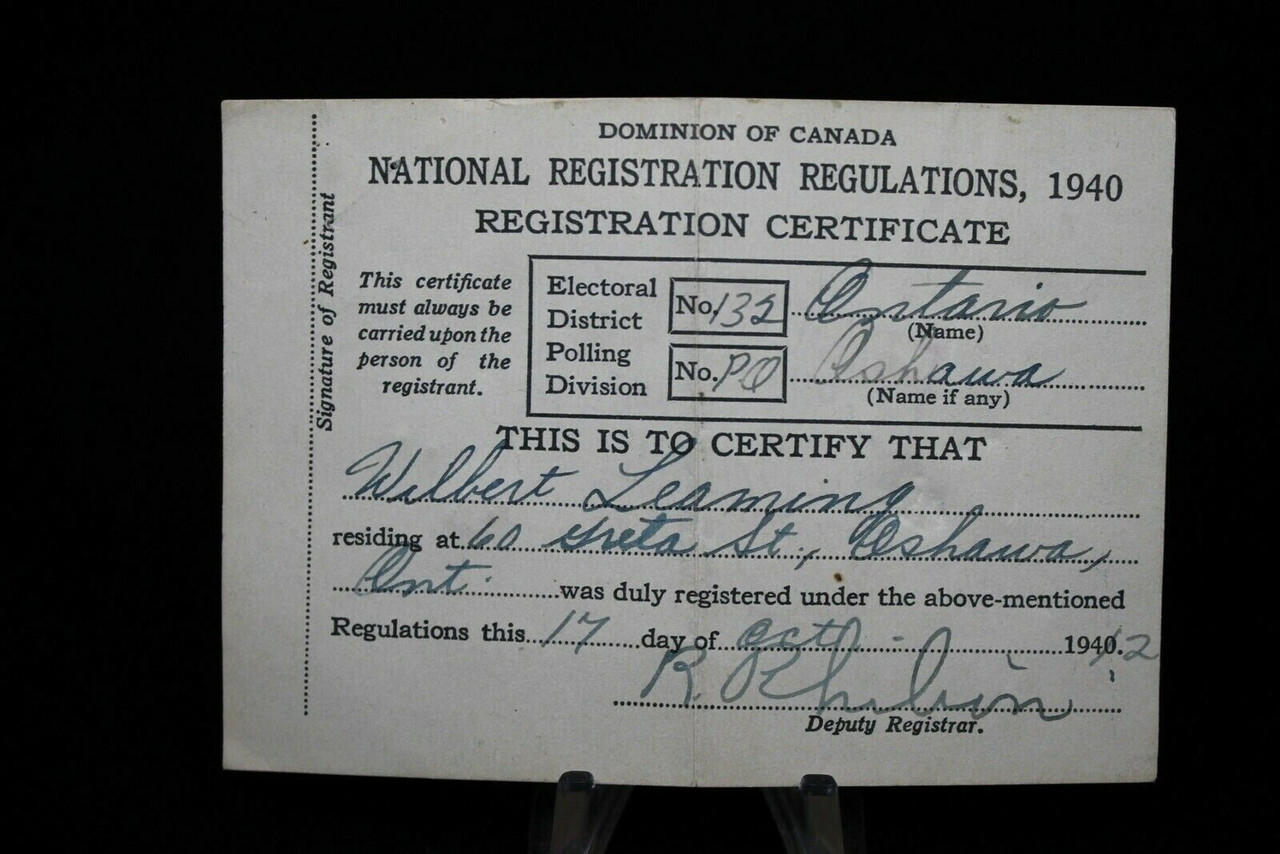 DOMINION OF CANADA
NATIONAL REGISTRATION REGULATIONS, 1940
REGISTRATION CERTIFICATE
Signature of Registrant
This certificate
must always be
carried upon the
person of the
registrant.
Electoral District No. 132 Ontario
(Name)
Polling Division No. PO Oshawa
(Name if any)
THIS IS TO CERTIFY THAT
Wilbert Leaming
residing at 60 Greta St., Oshawa,
Ont. was duly registered under the above-mentioned
Regulations this 17 day of Oct 1940. 2
R. Philbin
Deputy Registrar.